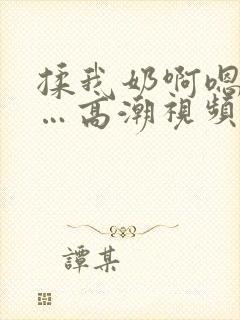 揉我奶啊嗯
…高潮视頻
譚某